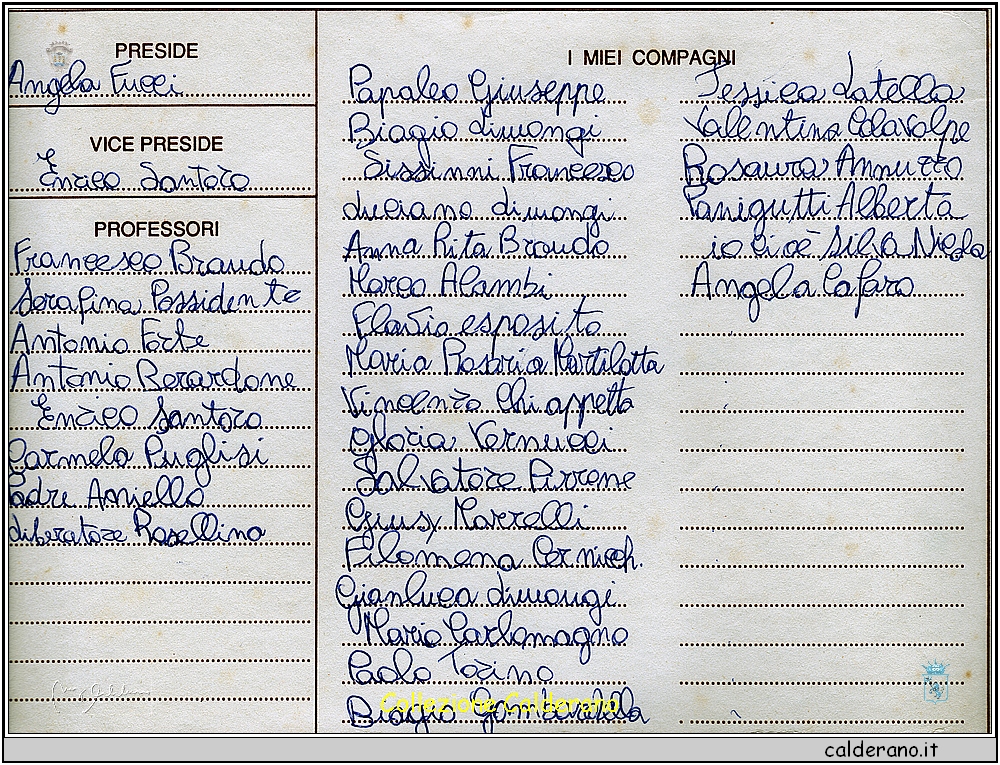 PRESIDE
Angela Fucci
VICE PRESIDE
Enrico Santoro
PROFESSORI
Francesco Brando
Serafina Possidente
Antonio Forte
Antonio Berardone
Enrico Santoro
Carmelo Puglisi
Padre Aniello
Liberatore Rosellina
I MIEI COMPAGNI
Papaleo Giuseppe
Biagio Limongi
Sissinni Francesco
Luciano Limongi
Anna Rita Brando
Marco Alambi
Flavio esposito
Maria Rosaria Martilotta
Vincenzo Chiappetta
Gloria Vernucci
Salvatore Pirrene
Giusy Marrelli
Filomena Cernicch.
Gianluca Limongi
Mario Carlomagno
Paolo Torino
Biagio
Jessica Latella
Valentina Colavolpe
Rosaura Annuzzo
Panigutti Alberta
io cioè Silva Nicola
Angela Cafaro
Collezione Calderano
calderano.it